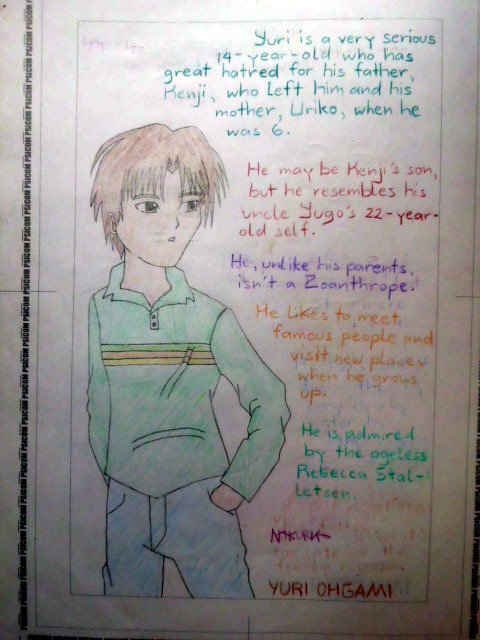 Yuri is a very serious
14-year-old who has
great hatred for his father,
Kenji, who left him and his
mother, Uriko, when he
was 6.
He may be Kenji's son,
but he resembles his
uncle Yugo's 22-year-
old self.
He, unlike his parents,
isn't a Zoanthrope.
He likes to meet
famous people and
visit new places
when he grows
up.
He is admired
by the ageless
Rebecca Stal-
letsen.
YURI OHGAMI
PSICOM PSICOM PSICOM PSICOM PSICOM PSICOM PSICOM PSICOM PSICOM PSICOM PSICOM PSICOM PSICOM PSICOM PSICOM